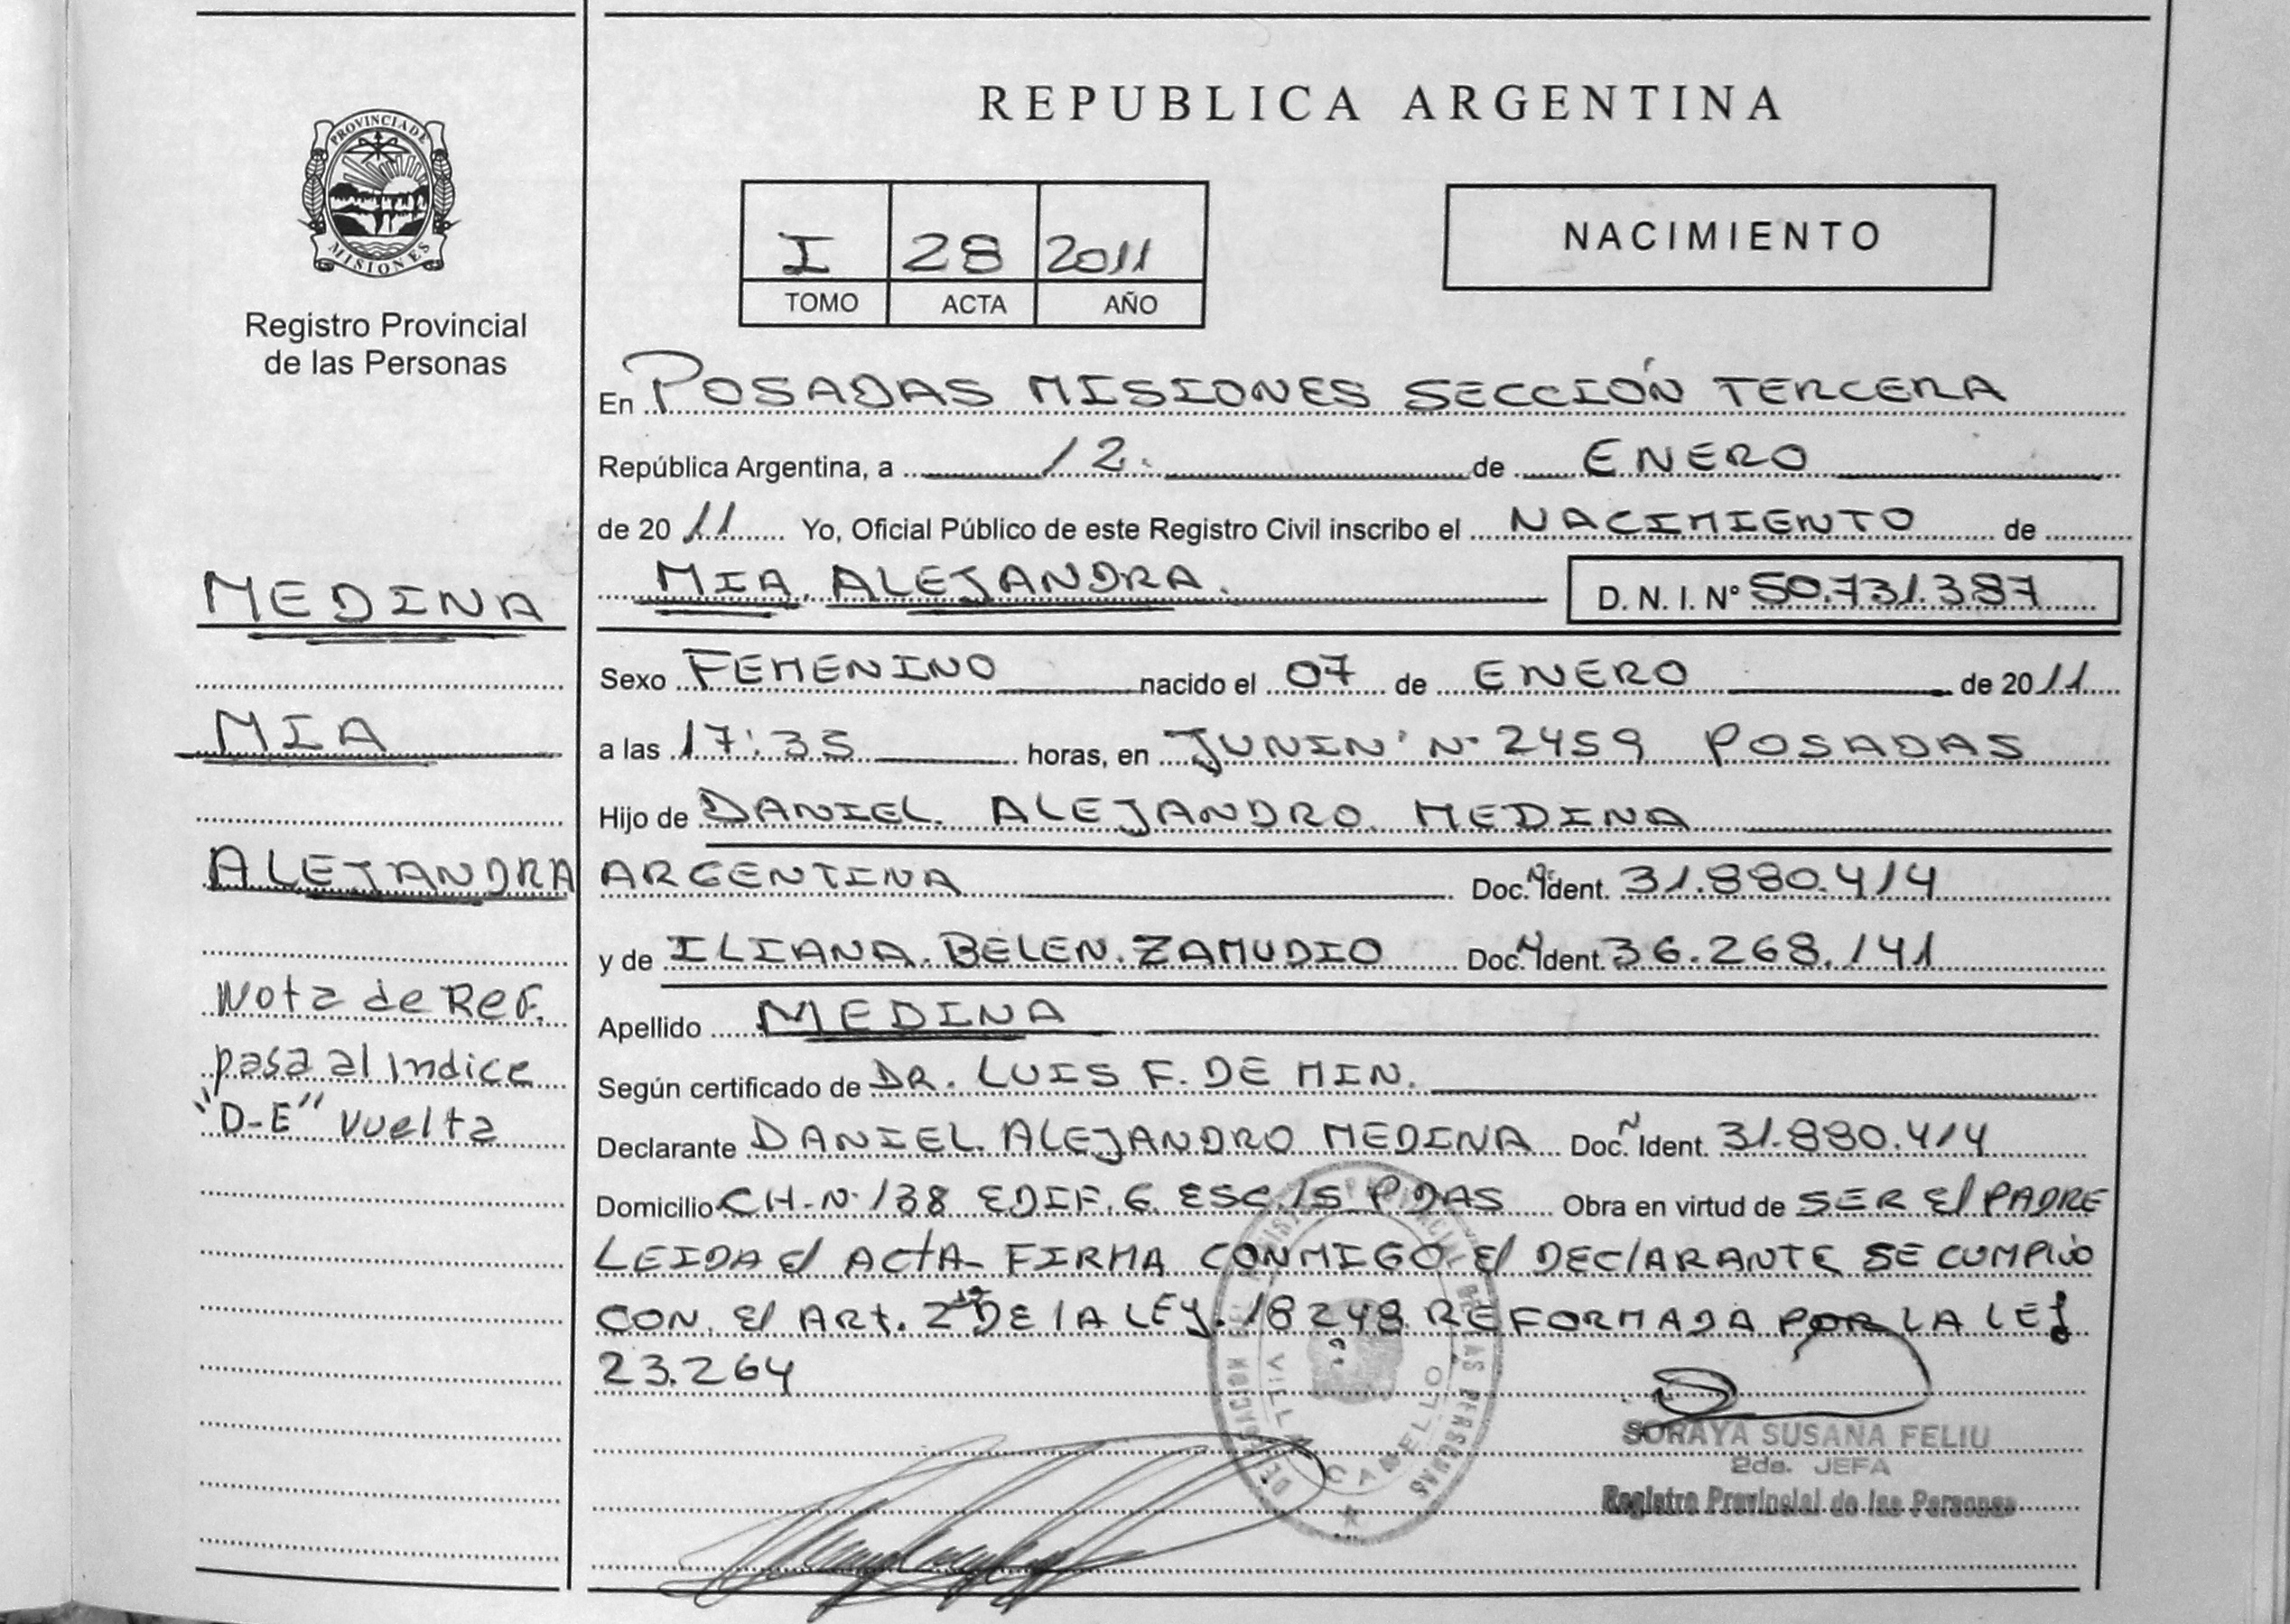 REPUBLICA ARGENTINA
PROVINCIA DE
MISIONES
Registro Provincial
de las Personas
I 28 2011
TOMO ACTA AÑO
NACIMIENTO
En POSADAS MISIONES SECCIÓN TERCERA
República Argentina, a 12 de ENERO
de 2011 Yo, Oficial Público de este Registro Civil inscribo el NACIMIENTO de
MIA ALEJANDRA. D. N. I. Nº 50.731.387
Sexo FEMENINO nacido el 07 de ENERO de 2011
a las 17:35 horas, en JUNIN Nº 2459 POSADAS
Hijo de DANIEL ALEJANDRO MEDINA
ARGENTINA Doc. Nº Ident. 31.880.414
y de ILIANA BELEN ZAMUDIO Doc. Nº Ident. 36.268.141
Apellido MEDINA
Según certificado de DR. LUIS F. DE MIN.
Declarante DANIEL ALEJANDRO MEDINA Doc. Nº Ident. 31.880.414
Domicilio CH-Nº 138 EDIF. 6 ESC. 15 PDAS Obra en virtud de SER El PADRE
LEIDA El ACTA FIRMA CONMIGO El DEClARANTE SE CUMPLIO
CON El ART. 2 DE lA LEY. 18248 REFORMADA POR LA LEY
23.264
MEDINA
MIA
ALEJANDRA
Nota de Ref.
pasa al Indice
"D-E" Vuelta
VILLA CABELLO
SORAYA SUSANA FELIU
2da. JEFA
Registro Provincial de las Personas